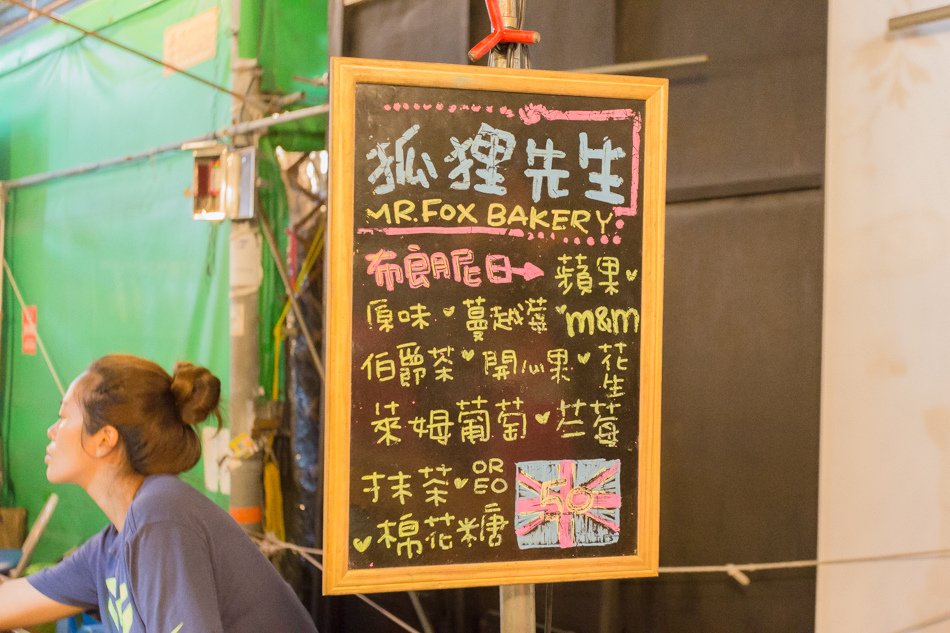 狐狸先生
MR.FOX BAKERY
布朗尼日→蘋果
原味♥蔓越莓♥m&m
伯爵茶♥開心果♥花生
萊姆葡萄♥竺莓
抹茶♥OREO
♥棉花糖
50